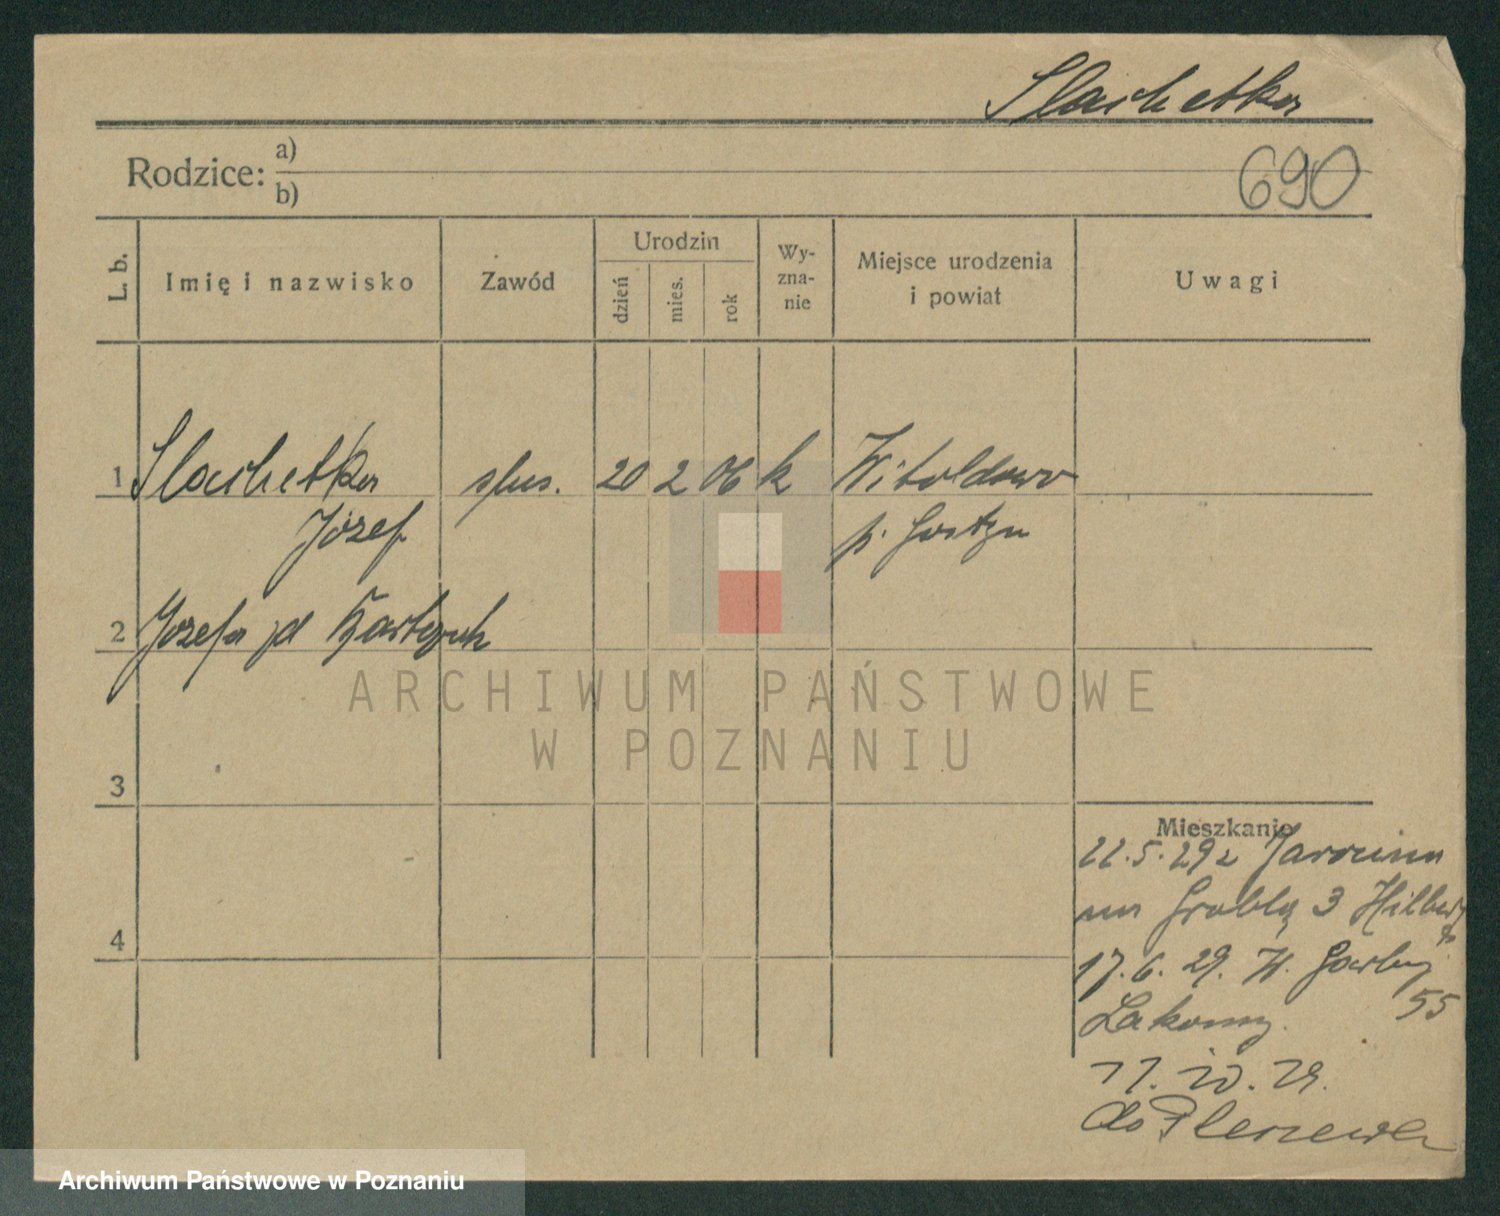 Slachetka
Rodzice: a)
b)
690
L. b. Imię i nazwisko Zawód Urodzin dzień mies. rok Wy-zna-nie Miejsce urodzenia i powiat Uwagi
1 Slachetka ślus. 20 2 06 k Witoldowo
Józef p. Gostyn
2 Józefa zd
3
Mieszkanie
22.5.29 z Jarocina
na Groblą 3
4
17.6.29. W. Garbary 55
Łakomy.
11.10.29.
do Pleszewa
ARCHIWUM PAŃSTWOWE
W POZNANIU
Archiwum Państwowe w Poznaniu